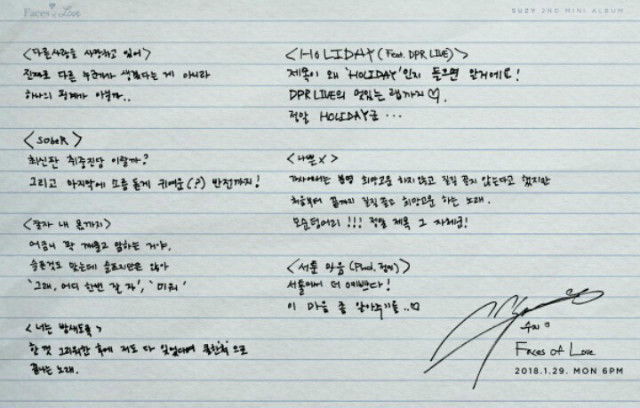 Faces of Love
SUZY 2ND MINI ALBUM
<다른사람을 사랑하고 있어>
진짜로 다른 누군가가 생겼다는 게 아니라
하나의 핑계가 아닐까..
<SObeR>
최신판 취중진담 이랄까?
그리고 마지막에 소름 돋게 귀여운(?) 반전까지!
<잘자 내 몸가지>
어금니 꽉 깨물고 말하는 거야.
슬픈것도 맞는데 슬프지만은 않아
'그래, 어디 한번 잘 자', '미워'
<너는 밤새도록>
한 껏 그리워한 후에 저도 다 잊었다며 쿨한'척'으로
끝나는 노래.
<HOLIDAY (Feat. DPR LIVE)>
제목이 왜 'HOLIDAY'인지 들으면 알거에요!
DPR LIVE의 멋있는 랩까지♡.
정말 HOLIDAY군...
<나쁜X>
가사에서는 분명 희망고문 하지않고 질질 끌지 않는다고 했지만
처음부터 끝까지 질질끌고 희망고문 하는 노래.
모순덩어리!!! 정말 제목 그 자체군!
<서툰 마음 (Prod. )>
서툴어서 더 예쁘다!
이 마음 좀 알아주기를..♡
수지
Faces of Love
2018.1.29. MON 6PM